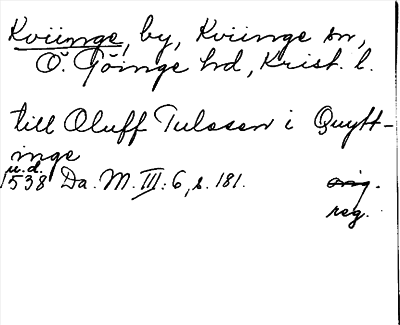 Kviinge, by, Kviinge sn,
Ö. Göinge hd, Krist. l.
till Oluff Tulssen i Quytt-
inge
u.d.
1538 Da. M. III: 6, s. 181.
org.
reg.